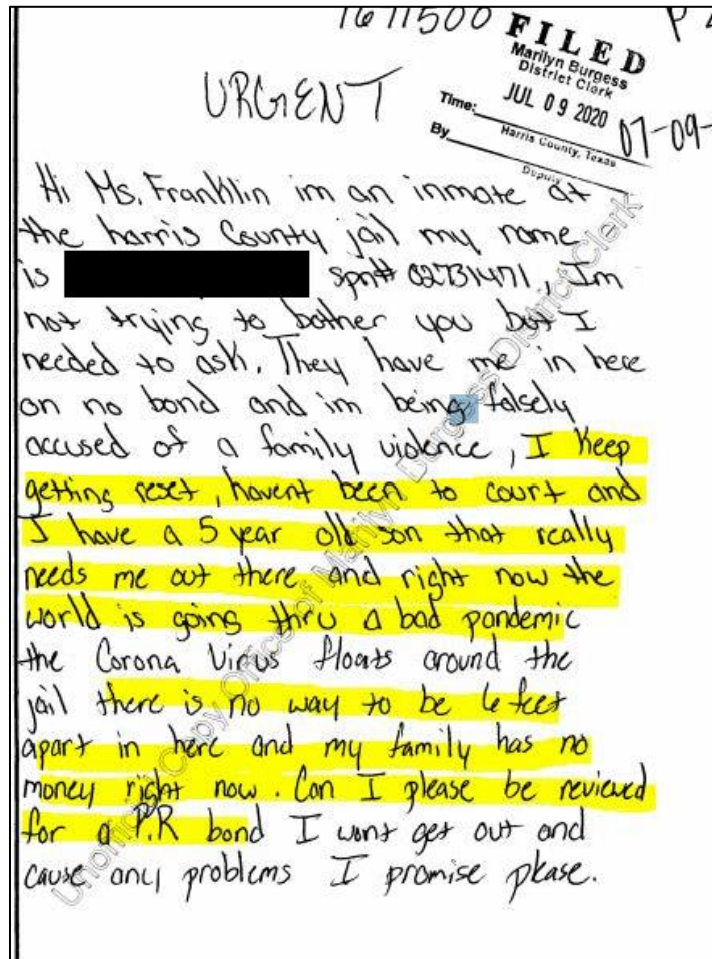 1671500
FILED
Marilyn Burgess
District Clerk
Time:
JUL 09 2020
By
Harris County, Texas
Deputy
07-09-
URGENT
Hi Ms. Franklin im an inmate at
the harris County jail my name
is spn# 02731471, Im
not trying to bother you but I
needed to ask. They have me in here
on no bond and im being falsely
accused of a family violence, I Keep
getting reset, havent been to court and
I have a 5 year old son that really
needs me out there and right now the
world is going thru a bad pandemic
the Corona Virus floats around the
jail there is no way to be 6 feet
apart in here and my family has no
money right now. Can I please be reviewed
for a P.R bond I wont get out and
cause any problems I promise please.
Unofficial Copy Office of Marilyn Burgess District Clerk